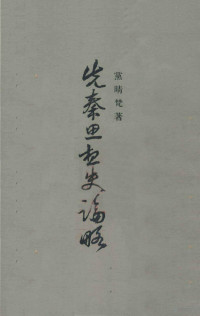 黨晴梵著
先秦思想史論略